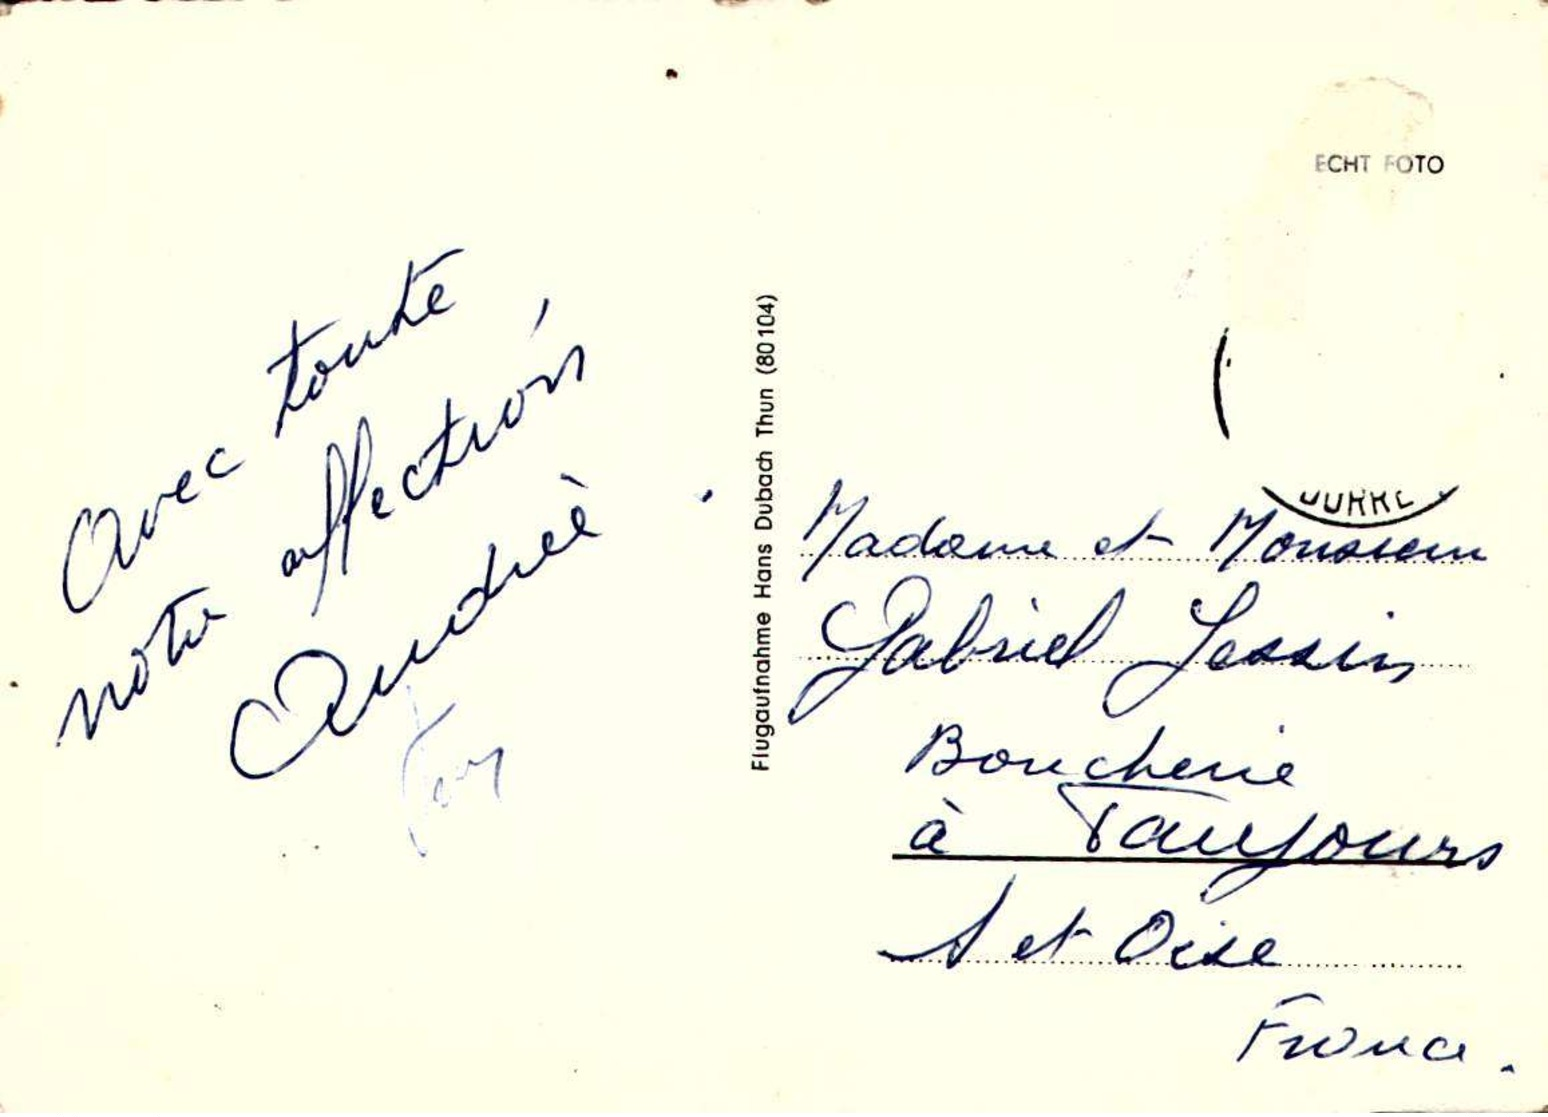 Avec toute
notre affection
Andrée
ECHT FOTO
Flugaufnahme Hans Dubach Thun (80104)
Madame et Monsieur
Gabriel Jessin
Boucherie
à Vaujours
S et Oise
France.